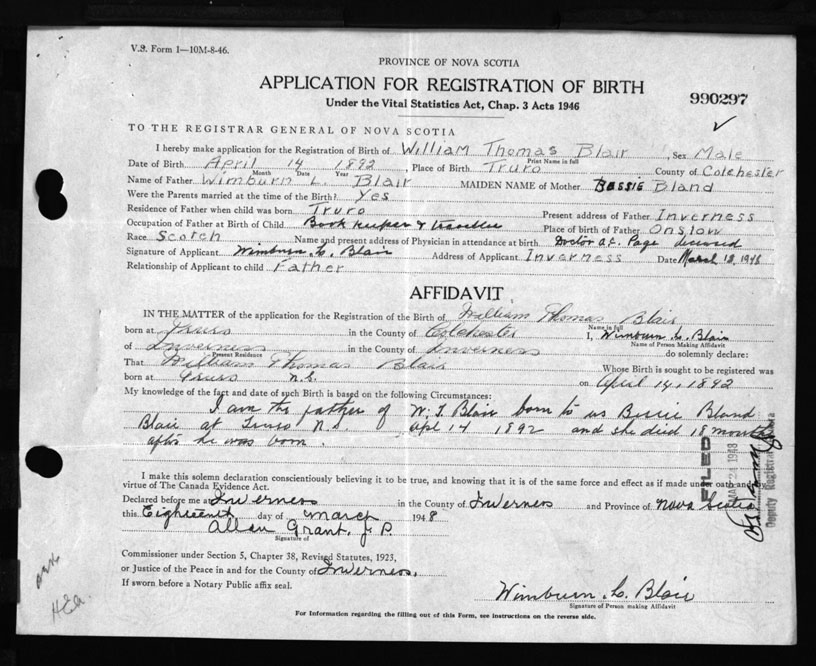 V.S. Form 1—10M-8-46.
PROVINCE OF NOVA SCOTIA
APPLICATION FOR REGISTRATION OF BIRTH
990297
Under the Vital Statistics Act, Chap. 3 Acts 1946
TO THE REGISTRAR GENERAL OF NOVA SCOTIA
I hereby make application for the Registration of Birth of William Thomas Blair, Sex Male
Print Name in full
Date of Birth April 14 1892, Place of Birth Truro County of Colchester
Month Date Year
Name of Father Wimburn L. Blair MAIDEN NAME of Mother BESSIE Bland
Were the Parents married at the time of the Birth? Yes
Residence of Father when child was born Truro Present address of Father Inverness
Occupation of Father at Birth of Child Book keeper & traveller Place of birth of Father Onslow
Race Scotch Name and present address of Physician in attendance at birth Doctor A.C. Page deceased
Signature of Applicant Wimburn L. Blair Address of Applicant Inverness Date March 18, 1948
Relationship of Applicant to child Father
AFFIDAVIT
IN THE MATTER of the application for the Registration of the Birth of William Thomas Blair
Name in full
born at Truro in the County of Colchester I, Wimburn L. Blair
Name of Person Making Affidavit
of Inverness in the County of Inverness do solemnly declare:
Present Residence
That William Thomas Blair Whose Birth is sought to be registered was
born at Truro N.S. on April 14, 1892
My knowledge of the fact and date of such Birth is based on the following Circumstances:
I am the father of W. T. Blair born to us Bessie Bland
Blair at Truro N.S. Apl 14 1892 and she died 18 months
after he was born.
I make this solemn declaration conscientiously believing it to be true, and knowing that it is of the same force and effect as if made under oath and by
virtue of The Canada Evidence Act.
Declared before me at Inverness in the County of Inverness and Province of Nova Scotia
this Eighteenth day of March 1948
Allan Grant, J.P.
Signature of
Commissioner under Section 5, Chapter 38, Revised Statutes, 1923,
or Justice of the Peace in and for the County of Inverness.
If sworn before a Notary Public affix seal.
Wimburn L. Blair
Signature of Person making Affidavit
For Information regarding the filling out of this Form, see instructions on the reverse side.
FILED
MAR 24 1948
Deputy Registrar